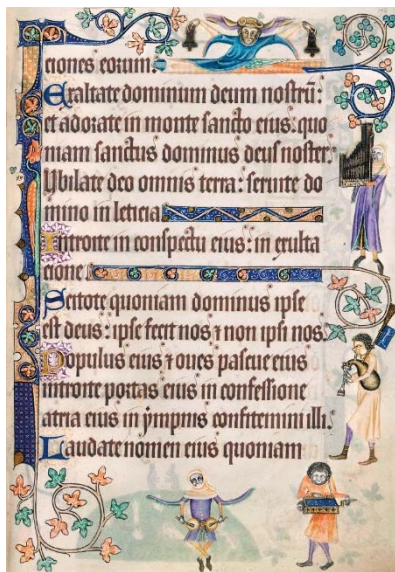 ciones eorum.
Exaltate dominum deum nostrū:
et adorate in monte sancto eius: quo
niam sanctus dominus deus noster.
Iubilate deo omnis terra: seruite do
mino in leticia
Introite in conspectu eius: in exulta
cione
Scitote quoniam dominus ipse
est deus: ipse fecit nos ⁊ non ipsi nos.
Populus eius ⁊ oues pascue eius
introite portas eius in confessione
atria eius in ympnis confitemini illi.
Laudate nomen eius quoniam